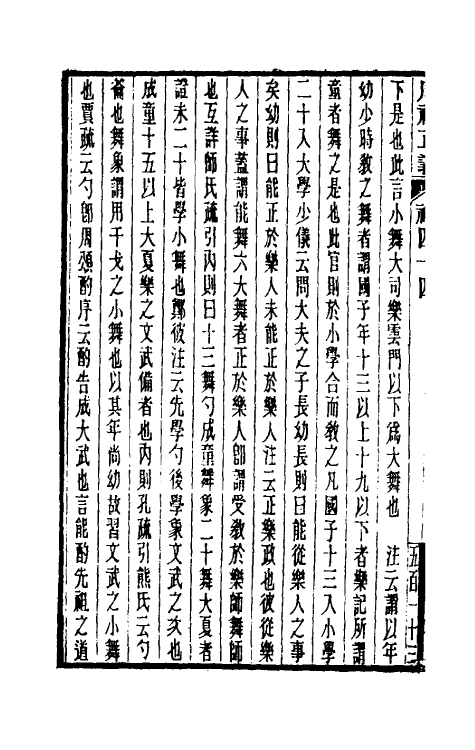 周禮正義 禮四十四
下是也此言小舞大司樂雲門以下爲大舞也 注云謂以年
幼少時敎之舞者謂國子年十三以上十九以下者樂記所謂
童者舞之是也此官則於小學合而敎之凡國子十三入小學
二十入大學少儀云問大夫之子長幼長則曰能從樂人之事
矣幼則曰能正於樂人未能正於樂人注云正樂政也彼從樂
人之事蓋謂能舞六大舞者正於樂人卽謂受敎於樂師舞師
也互詳師氏疏引內則曰十三舞勺成童舞象二十舞大夏者
證未二十皆學小舞也鄭彼注云先學勺後學象文武之次也
成童十五以上大夏樂之文武備者也內則孔疏引熊氏云勺
籥也舞象謂用干戈之小舞也以其年尙幼故習文武之小舞
也賈疏云勺卽周頌酌序云酌告成大武也言能酌先祖之道